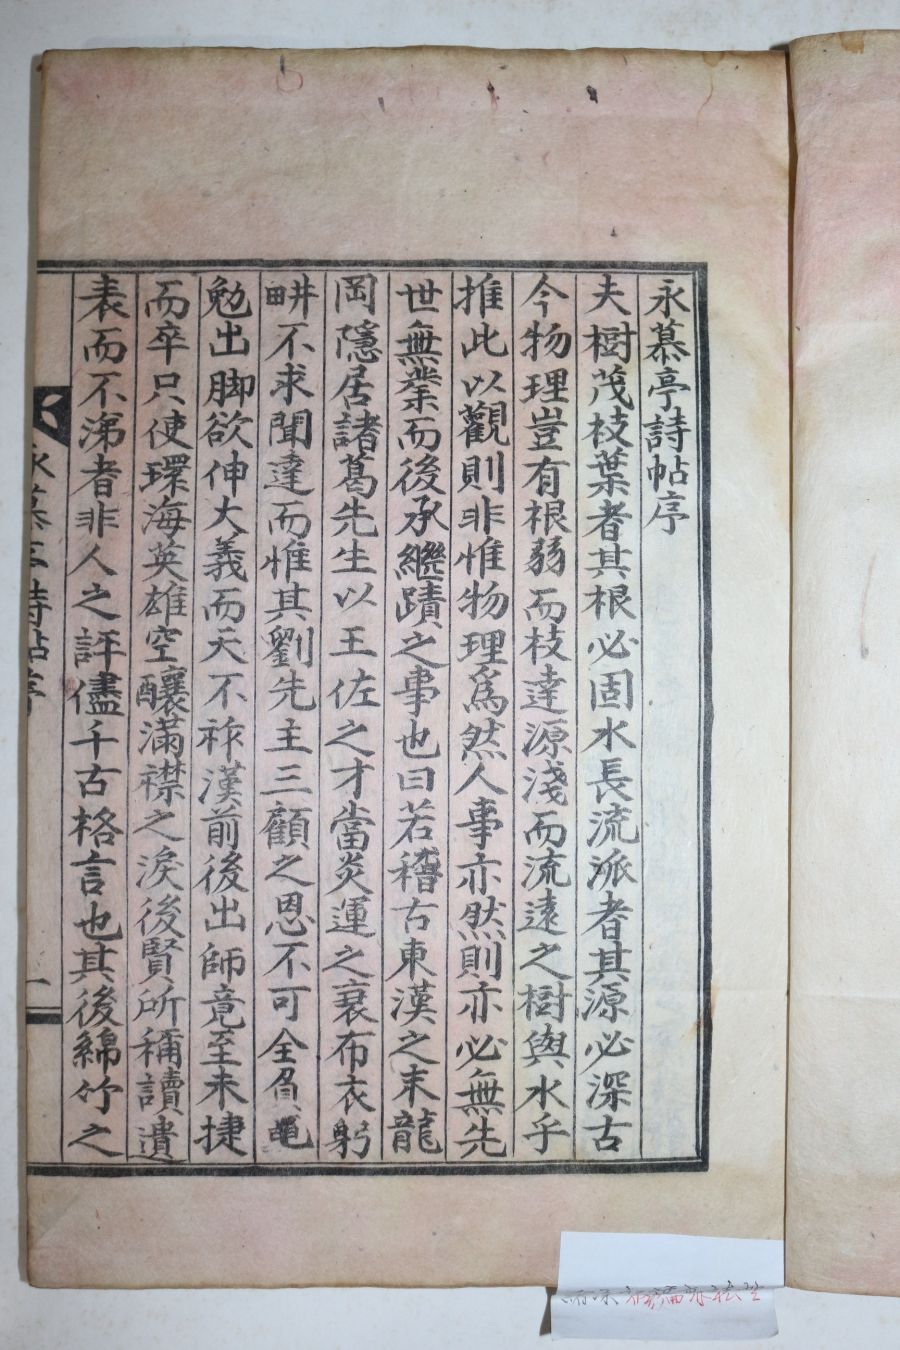 永慕亭詩帖序
夫樹茂枝葉者其根必固水長流派者其源必深古
今物理豈有根弱而枝達源淺而流遠之樹與水乎
推此以觀則非惟物理爲然人事亦然則亦必無先
世無業而後承繼蹟之事也曰若稽古東漢之末龍
岡隱居諸葛先生以王佐之才當炎運之衰布衣躬
畊不求聞達而惟其劉先主三顧之恩不可全負黽
勉出脚欲伸大義而天不祚漢前後出師竟至未捷
而卒只使環海英雄空釀滿襟之淚後賢所稱讀遺
表而不涕者非人之評儘千古格言也其後綿竹之
永慕亭詩帖序 一